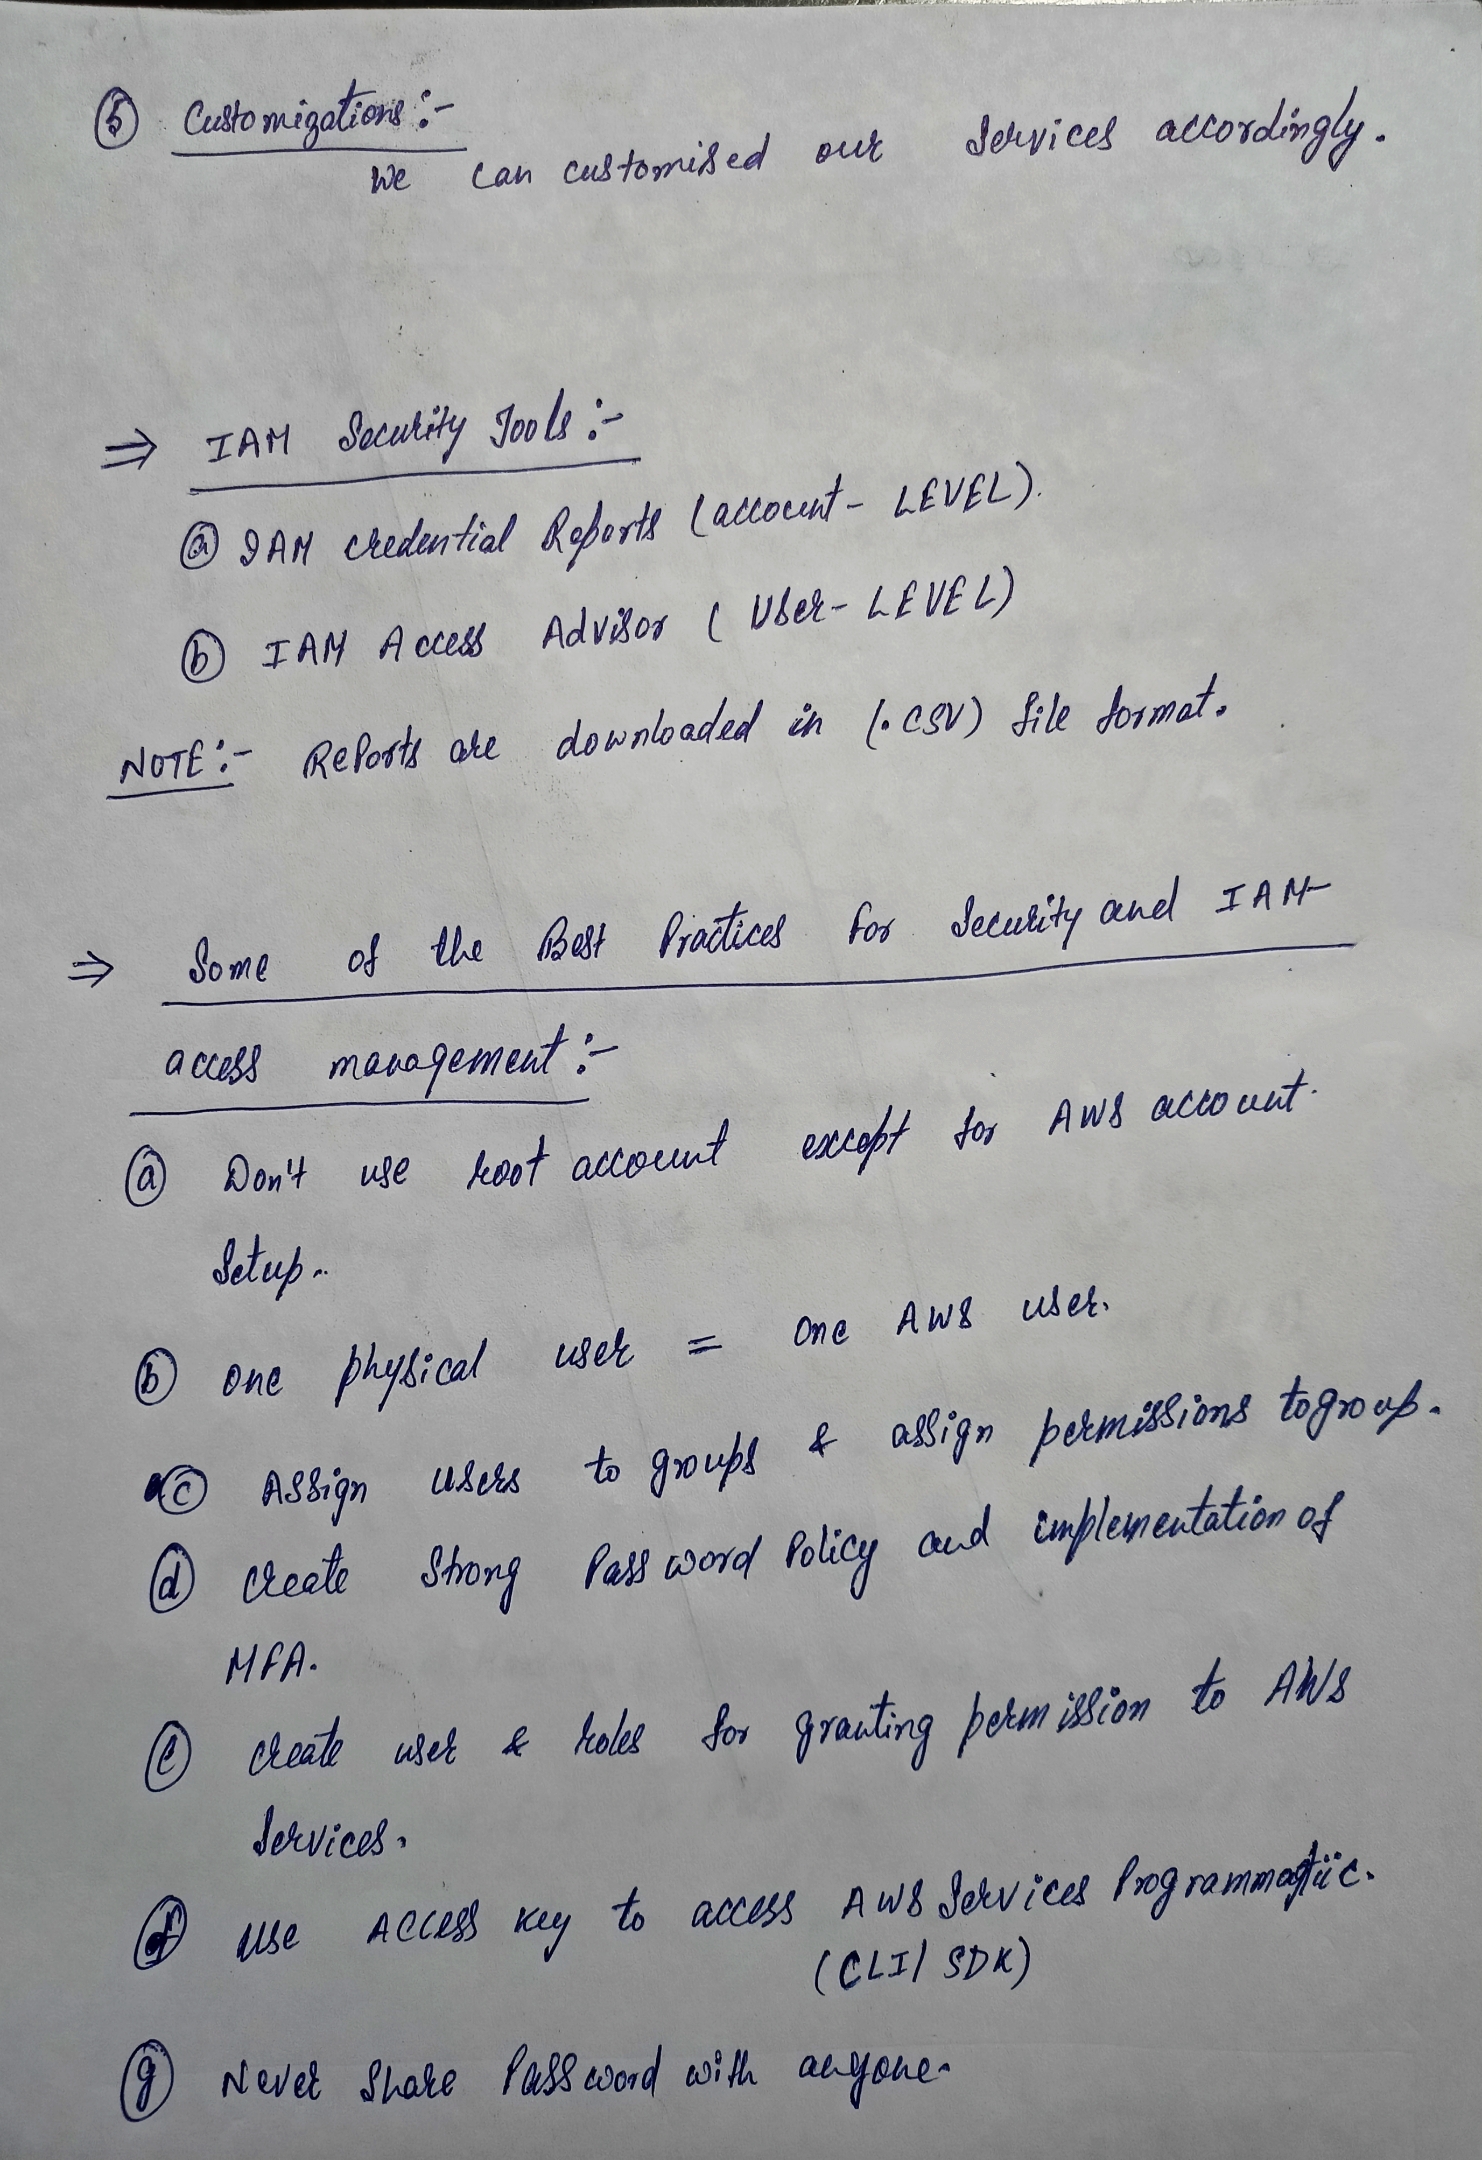 ⑤ Customizations :-
We can customised our services accordingly.
⇒ IAM Security Tools :-
ⓐ IAM credential Reports (account- LEVEL).
ⓑ IAM Access Advisor ( User- LEVEL)
NOTE :- Reports are downloaded in (.CSV) file format.
⇒ Some of the Best Practices for Security and IAM
access management :-
ⓐ Don't use root account except for AWS account
Setup.
ⓑ one physical user = one AWS user.
ⓒ Assign users to groups & assign permissions to group.
ⓓ create Strong Password Policy and implementation of
MFA.
ⓔ create user & roles for granting permission to AWS
Services.
ⓕ use Access key to access AWS Services Programmatic.
(CLI/ SDK)
ⓖ Never Share Password with anyone.